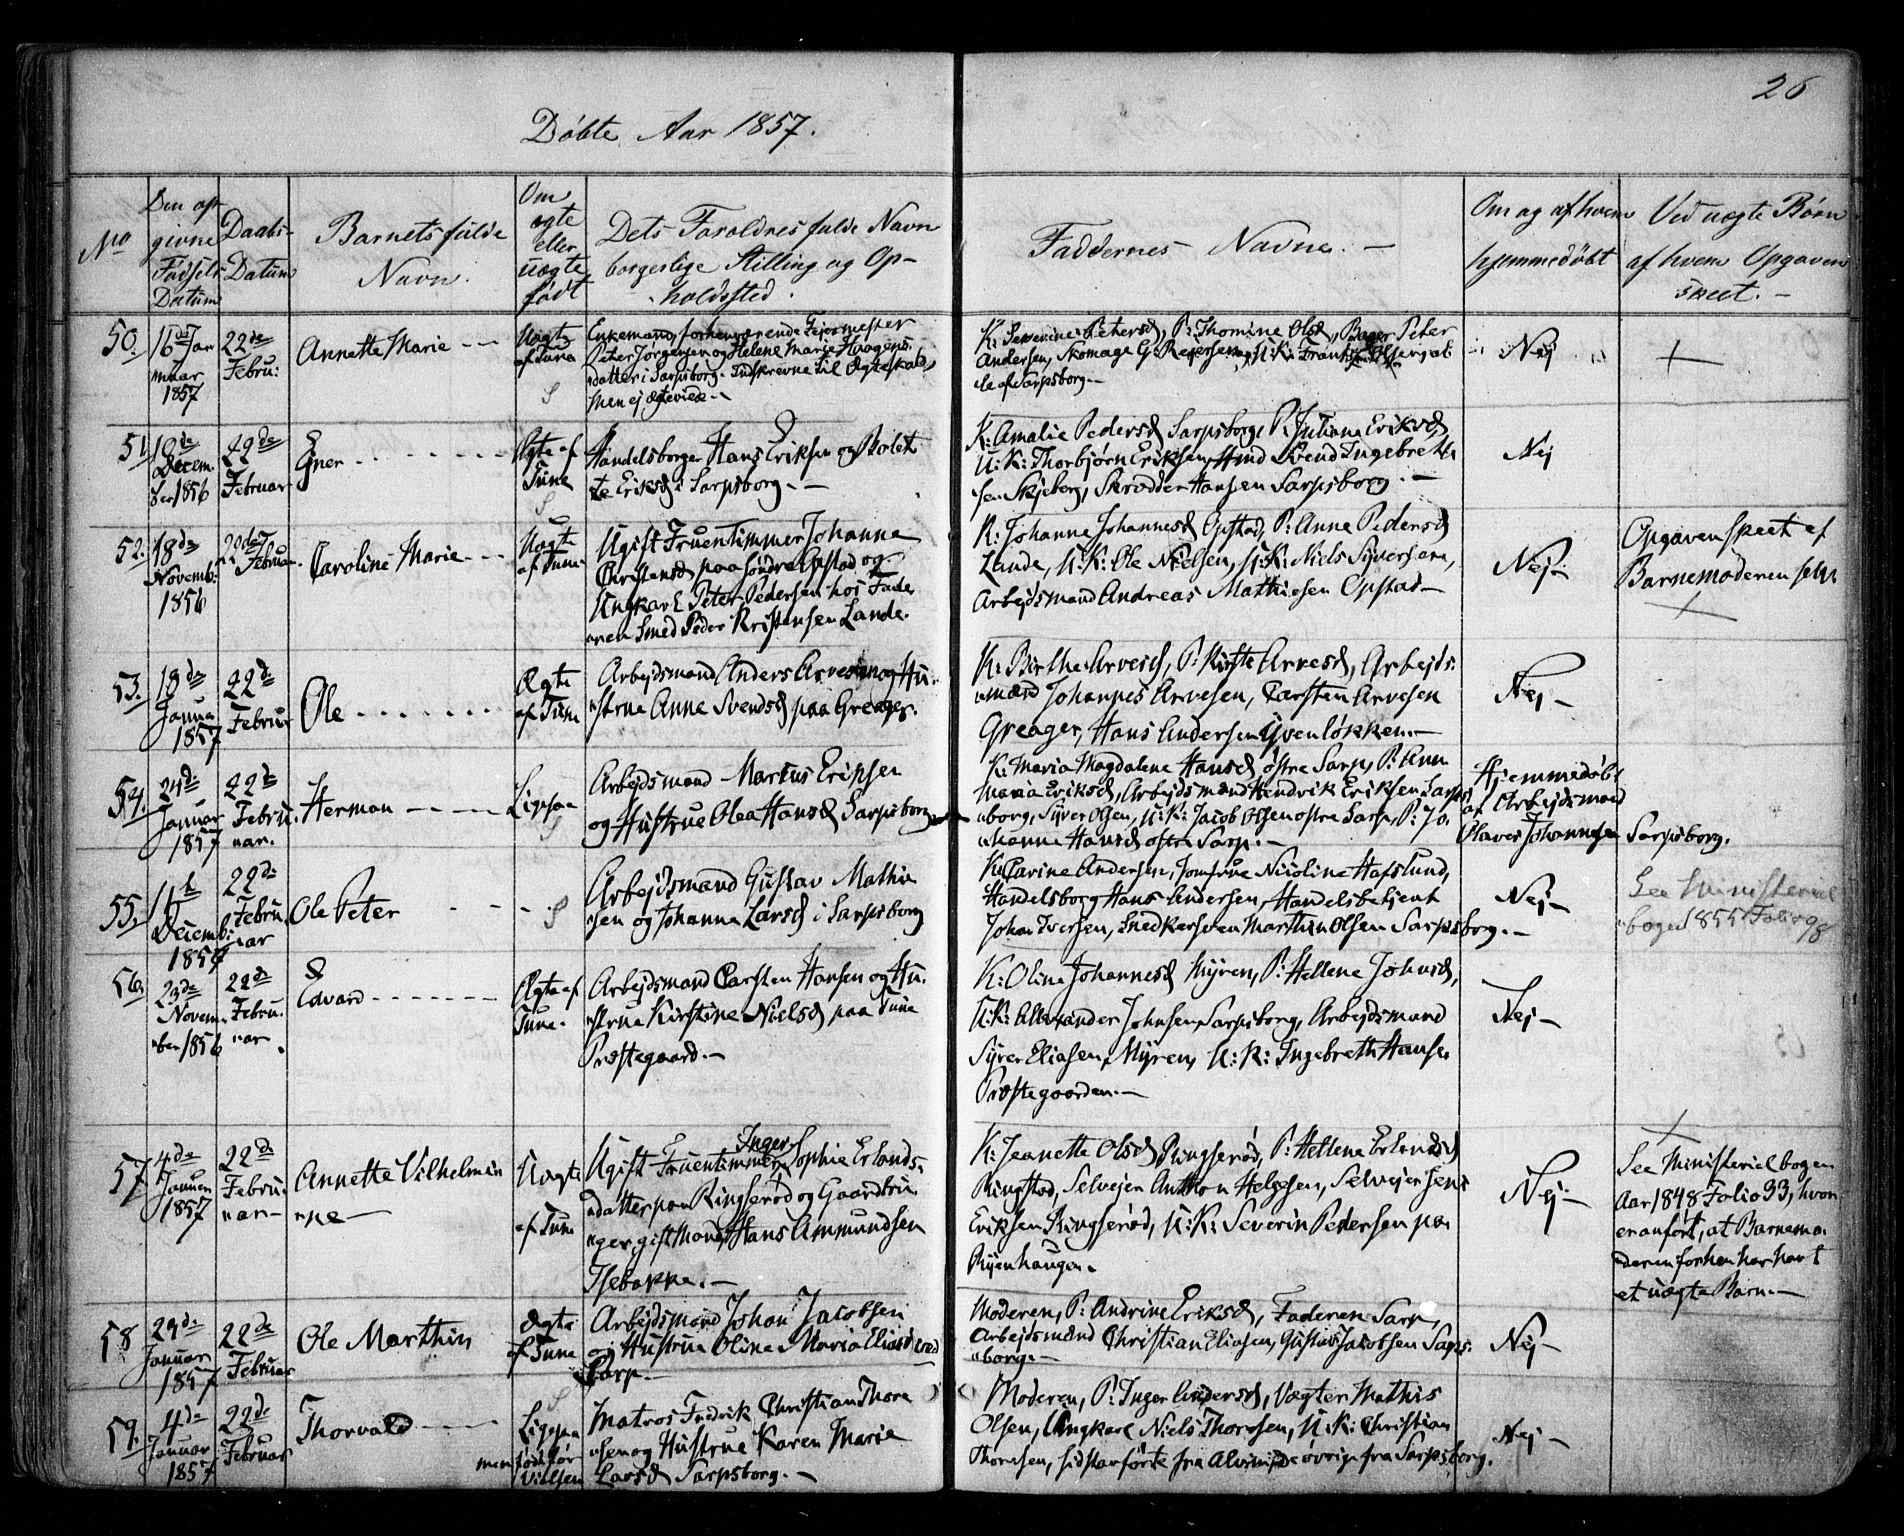 26
Døbte Aar 1857.
No
Den op-
givne
Fødsels
Datum
Daabs-
Datum
Barnets fulde
Navn.
Om
ægte
eller
uægte
født
Dets Foroldres fulde Navn
borgerlige Stilling og Op-
holdssted.
Faddernes Navne. —
Om og af hvem
hjemmedøbt
Ved uægte Børn
af hvem Opgaven
skeet. —
50.
16de Jan
nuar
1857
22de
Febru:
Annette Marie — —
Uægte
af Tune
Enkemand, forhenværende Feiermester
Peter Jørgensen og Helene Marie Haagens
datter i Sarpsborg. Indskrevne til Ægteskab,
men ej ægteviede. —
K: Severine Petersd, P: Thomine Olsd, Bager Peter
Andersen, Skomage G:
le af Sarpsborg. —
Nej
+
51.
18de
Decem-
ber 1856
22de
Februar
Ejner - - - - - - -
Ægte af
Tune
Handelsborger Hans Eriksen og Bolet
te Eriksd i Sarpsborg. —
K: Amalie Pedersd Sarpsborg, P: Juliana Eriksd,
U: K: Thorbjørn Eriksen, Svend Ingebreth
sen Skjeberg, Skrædder Hansen Sarpsborg. —
Nej
52.
18de
Novemb:
1856
22de
Februar
Caroline Marie - - -
Uægte
af Tune
Ugift Fruentimmer Johanne
Christensd paa søndre Opstad og
Ungkarl Peter Pedersen hos Fade
ren Smed Peder Kristensen Lande.
K: Johanne Johannesd Opstad, P: Anne Pedersd
Lande, U: K: Ole Nielsen, U: K: Niels Syversen,
Arbejdsmand Andreas Mathisen Opstad —
Nej —
Opgaven skeet af
Barnemoderen selv
+
53.
18de
Janua
1857
22de
Februar
Ole - - - - - - -
Ægte
af Tune
Arbejdsmand Anders Arvesen og Hu-
strue Anne Svendsd paa Greager.
K: Birthe Arvesd, P: Kirste Arvesd, Arbejds-
mænd Johannes Arvesen, Carsten Arvesen
Greager, Hans Andersen Yvenløkken. —
Nej —
54.
24de
Januar
1857
22de
Febru.
uar.
Herman - - - -
Ligesaa
Arbejdsmand Marius Eriksen
og Hustrue Olea Hansd Sarpsborg
K: Maria Magdalene Hansd østre Sarp, P: Ann
Maria Eriksd, Arbejdsmænd Hendrik Eriksen Sarps
borg, Syver Olsen, U: K: Jacob Olsen østre Sarp, P: Jo-
hanna Hansd østre Sarp. —
Hjemmedøbt
af Arbejdsmand
Olaves Johannesen Sarpsborg.
55.
11te
Decemb:
1857
22de
Febru.
uar
Ole Peter - - - -
Arbejdsmand Gustav Mathi
sen og Johanna Larsd i Sarpsborg
K: Carine Andersen, Jomfrue Nicoline Hafslund,
Handelsborg Hans Andersen, Handelsbetjent
Johan Iversen, Snedkersvenn Marthin Olsen Sarpsborg. —
Nej —
See Ministerial
bogen 1855 Folio 98
56.
23de
Novem-
ber 1856
22de
Febru.
uar
Edvard - - - - - - -
Ægte af
Tune.
Arbejdsmand Carsten Hansen og Hu-
strue Kirstine Nielsd paa Tune
Præstegaard. —
K: Oline Johannesd Myren, P: Hellene Johnsd,
U: K: Allexander Johnsen Sarpsborg, Arbejdsmand
Syver Eliasen, Myren, U: K: Ingebreth Hanse
Præstegaarden. —
Nej —
57.
4de
Januar
1857
22de
Febru.
uar —
Annette Vilhelmin
ne —
Uægte
af Tune
Inger
Ugift Fruentimmer, Sophie Erlands-
datter paa Ringserød og Gaardbru
ger, gift Mand, Hans Ammundsen
Isebakke. —
K: Jeanette Olsd Ringserød, P: Hellene Erlandsd
Ringstød, Selvejer Anthon Helgesen, Selvejer Jens
Eriksen Ringserød, U: K: Severin Pedersen paa
Ryenhaugen.
Nej —
+
See Ministerial bogen
Aar 1848 Folio 33, hvor
er anført, at Barnemo-
deren forhen har havt
et uægte Barn. —
58
29de
Januar
1857
22de
Februar
Ole Marthin
Ægte
af Tune
Arbejdsmand Johan Jacobsen
og Hustrue Oline Maria Eliasd ved
Sarp. —
Moderen, P: Andrine Eriksd, Faderen Sarp,
Arbejdsmænd Christian Eliasen, Gustav Jacobsen Sarps-
borg. —
Nej —
59.
4de
Januar
1857
22de
Februar
Thorvald - - - -
Ligesaa
men født før
Vielsen
Matros Fredrik Christian Thore
sen og Hustrue Karen Marie
Larsd Sarpsborg. —
Moderen, P: Inger Andersd, Vægter Mathis
Olsen, Ungkarl Niels Thoresen, U: K: Christian
Thoresen, sidstanførte fra Alvim, de øvrige fra Sarpsborg.
Nej —